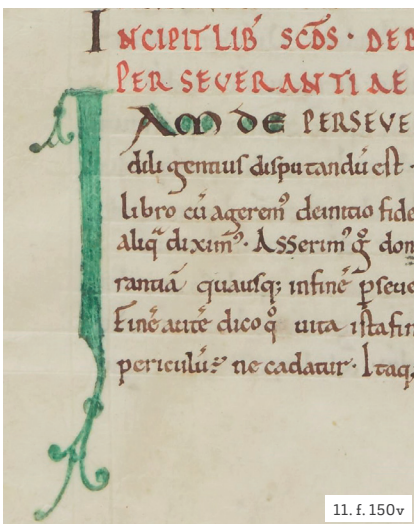 INCIPIT LIB SCDS · DE
PERSEVERANTIAE
IAM DE PERSEVE
diligentius disputandū est ·
libro cū ageremꝰ de initio fide
aliq̄ diximꝰ · Asserimꝰ g̊ don
rantiā quausq; in finē
Finē autē dico q̊ uita ista fin
periculū ne cadatur · Itaq,
11. f. 150v